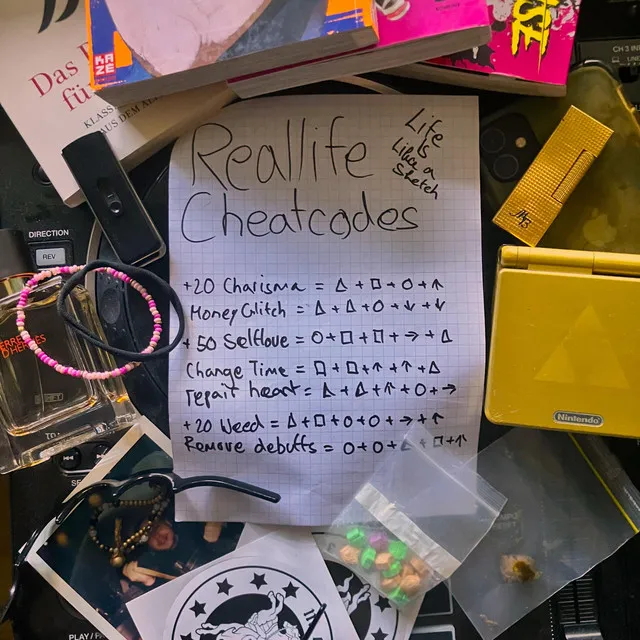 KAZE
Das
fü
KLASS
AUS DEM
CH 3
DIRECTION
REV
TERRE
D'HERMES
Reallife
Cheatcodes
Life
is
Like a
Sketch
+20 Charisma = △ + □ + ○ + ↑
Money Glitch = △ + △ + ○ + ↓ + ↓
+50 Selflove = ○ + □ + □ + → + △
Change Time = □ + □ + ↑ + ↑ + △
repair heart = △ + △ + ↑ + ○ + →
+20 Weed = △ + □ + ○ + ○ + → + ↑
Remove debuffs = ○ + ○ + + □ + ↑
Nintendo
PLAY / P